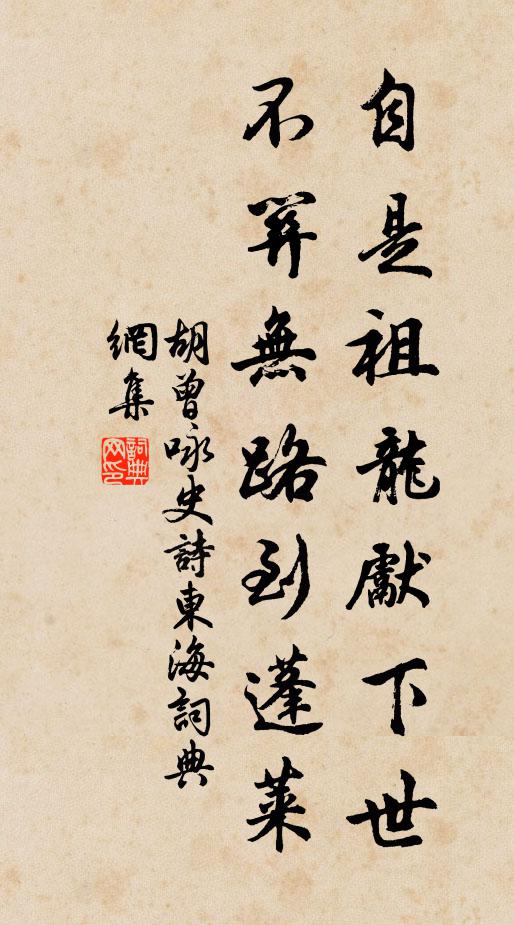 自是祖龍獻下世
不關無路到蓬萊
胡曾咏史詩東海詞典
網集
詞典
网印